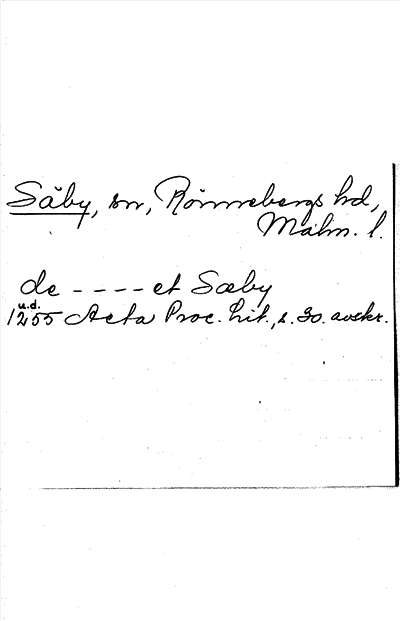 Säby, sn, Rönnebergs hd,
Malm. l.
de - - - - et Sæby
u.d.
1255 Acta Proc. Lit., s. 30. avskr.